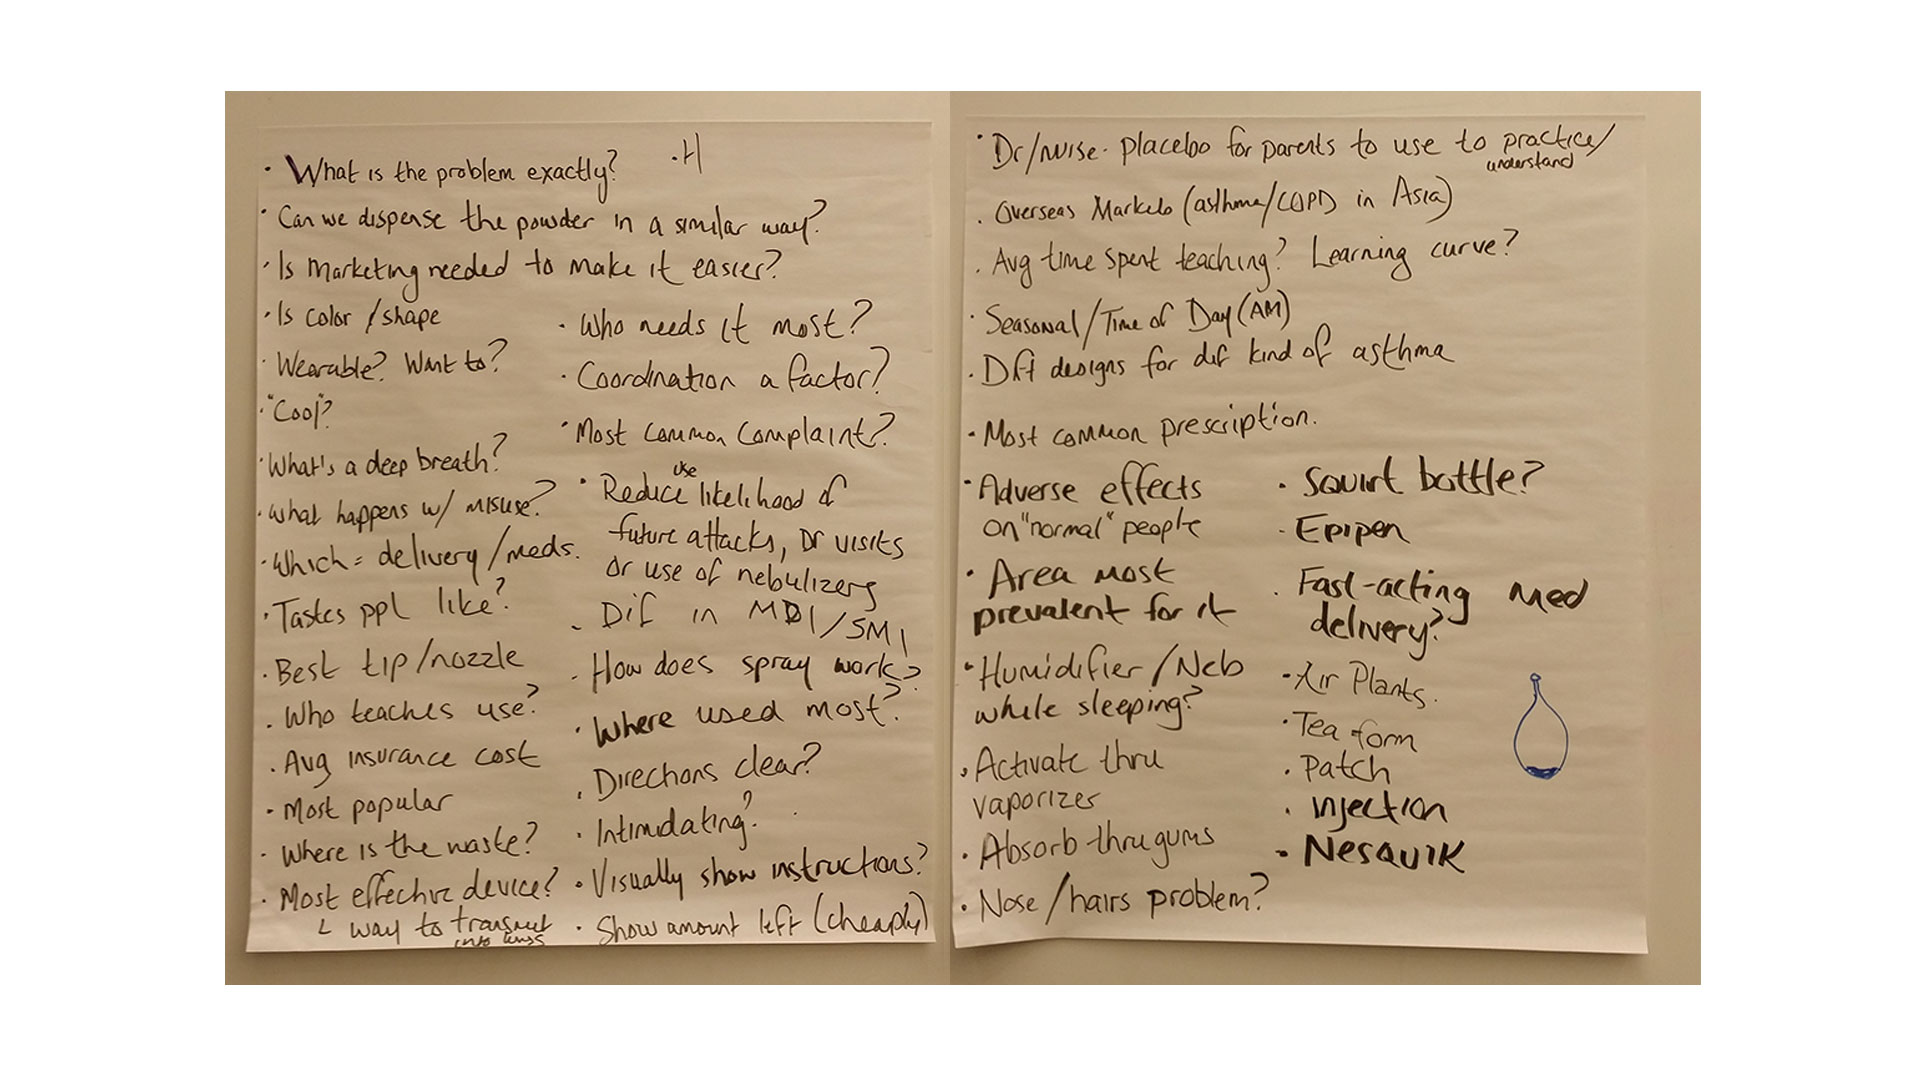 · What is the problem exactly?
· H
· Can we dispense the powder in a similar way?
· Is Marketing needed to make it easier?
· Is color / shape
· Wearable? Want to?
· "Cool"?
· What's a deep breath?
· What happens w/ misuse?
· Which = delivery / meds.
· Tastes ppl like?
· Best tip/nozzle
· Who teaches use?
· Avg insurance cost
· Most popular
· Where is the waste?
· Most effective device?
└ way to transmit
into lungs
· Who needs it most?
· Coordination a factor?
· Most common complaint?
use
· Reduce likelihood of
future attacks, Dr visits
or use of nebulizers
- Dif in MDI/SMI
- How does spray work?
· Where used most?
· Directions clear?
· Intimidating?
· Visually show instructions?
· Show amount left (cheaply)
· Dr/nurse - placebo for parents to use to practice/
understand
· Overseas Markets (asthma/COPD in Asia)
· Avg time spent teaching? Learning curve?
· Seasonal/Time of Day (AM)
· Dft designs for dif kind of asthma
· Most common prescription.
· Adverse effects
on "normal" people
· Area most
prevalent for it
· Humidifier/Neb
while sleeping?
· Activate thru
vaporizer
· Absorb thru gums
· Nose/hairs problem?
· Squirt bottle?
· Epipen
· Fast-acting med
delivery?
· Air Plants.
· Tea form
· Patch
· injection
· Nesquik